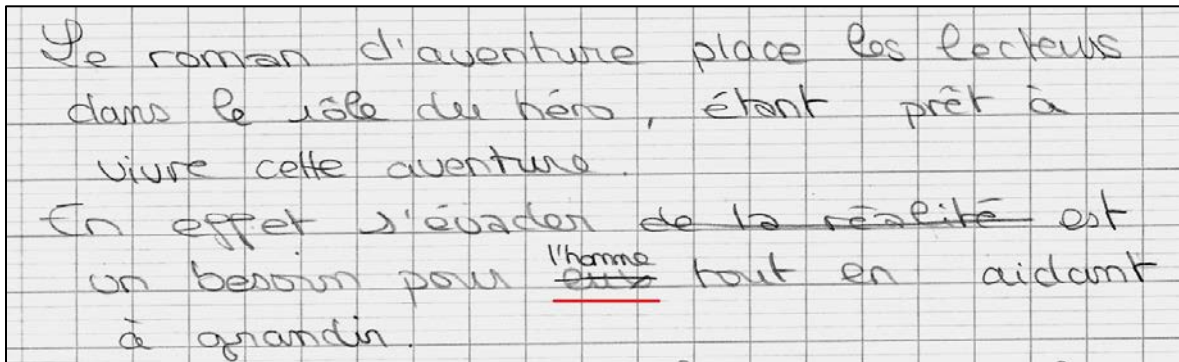 Le roman d'aventure place les lecteurs
dans le rôle du héro, étant prêt à
vivre cette aventure.
En effet s'évader de la réalité est
un besoin pour l'homme eux tout en aidant
à grandir.